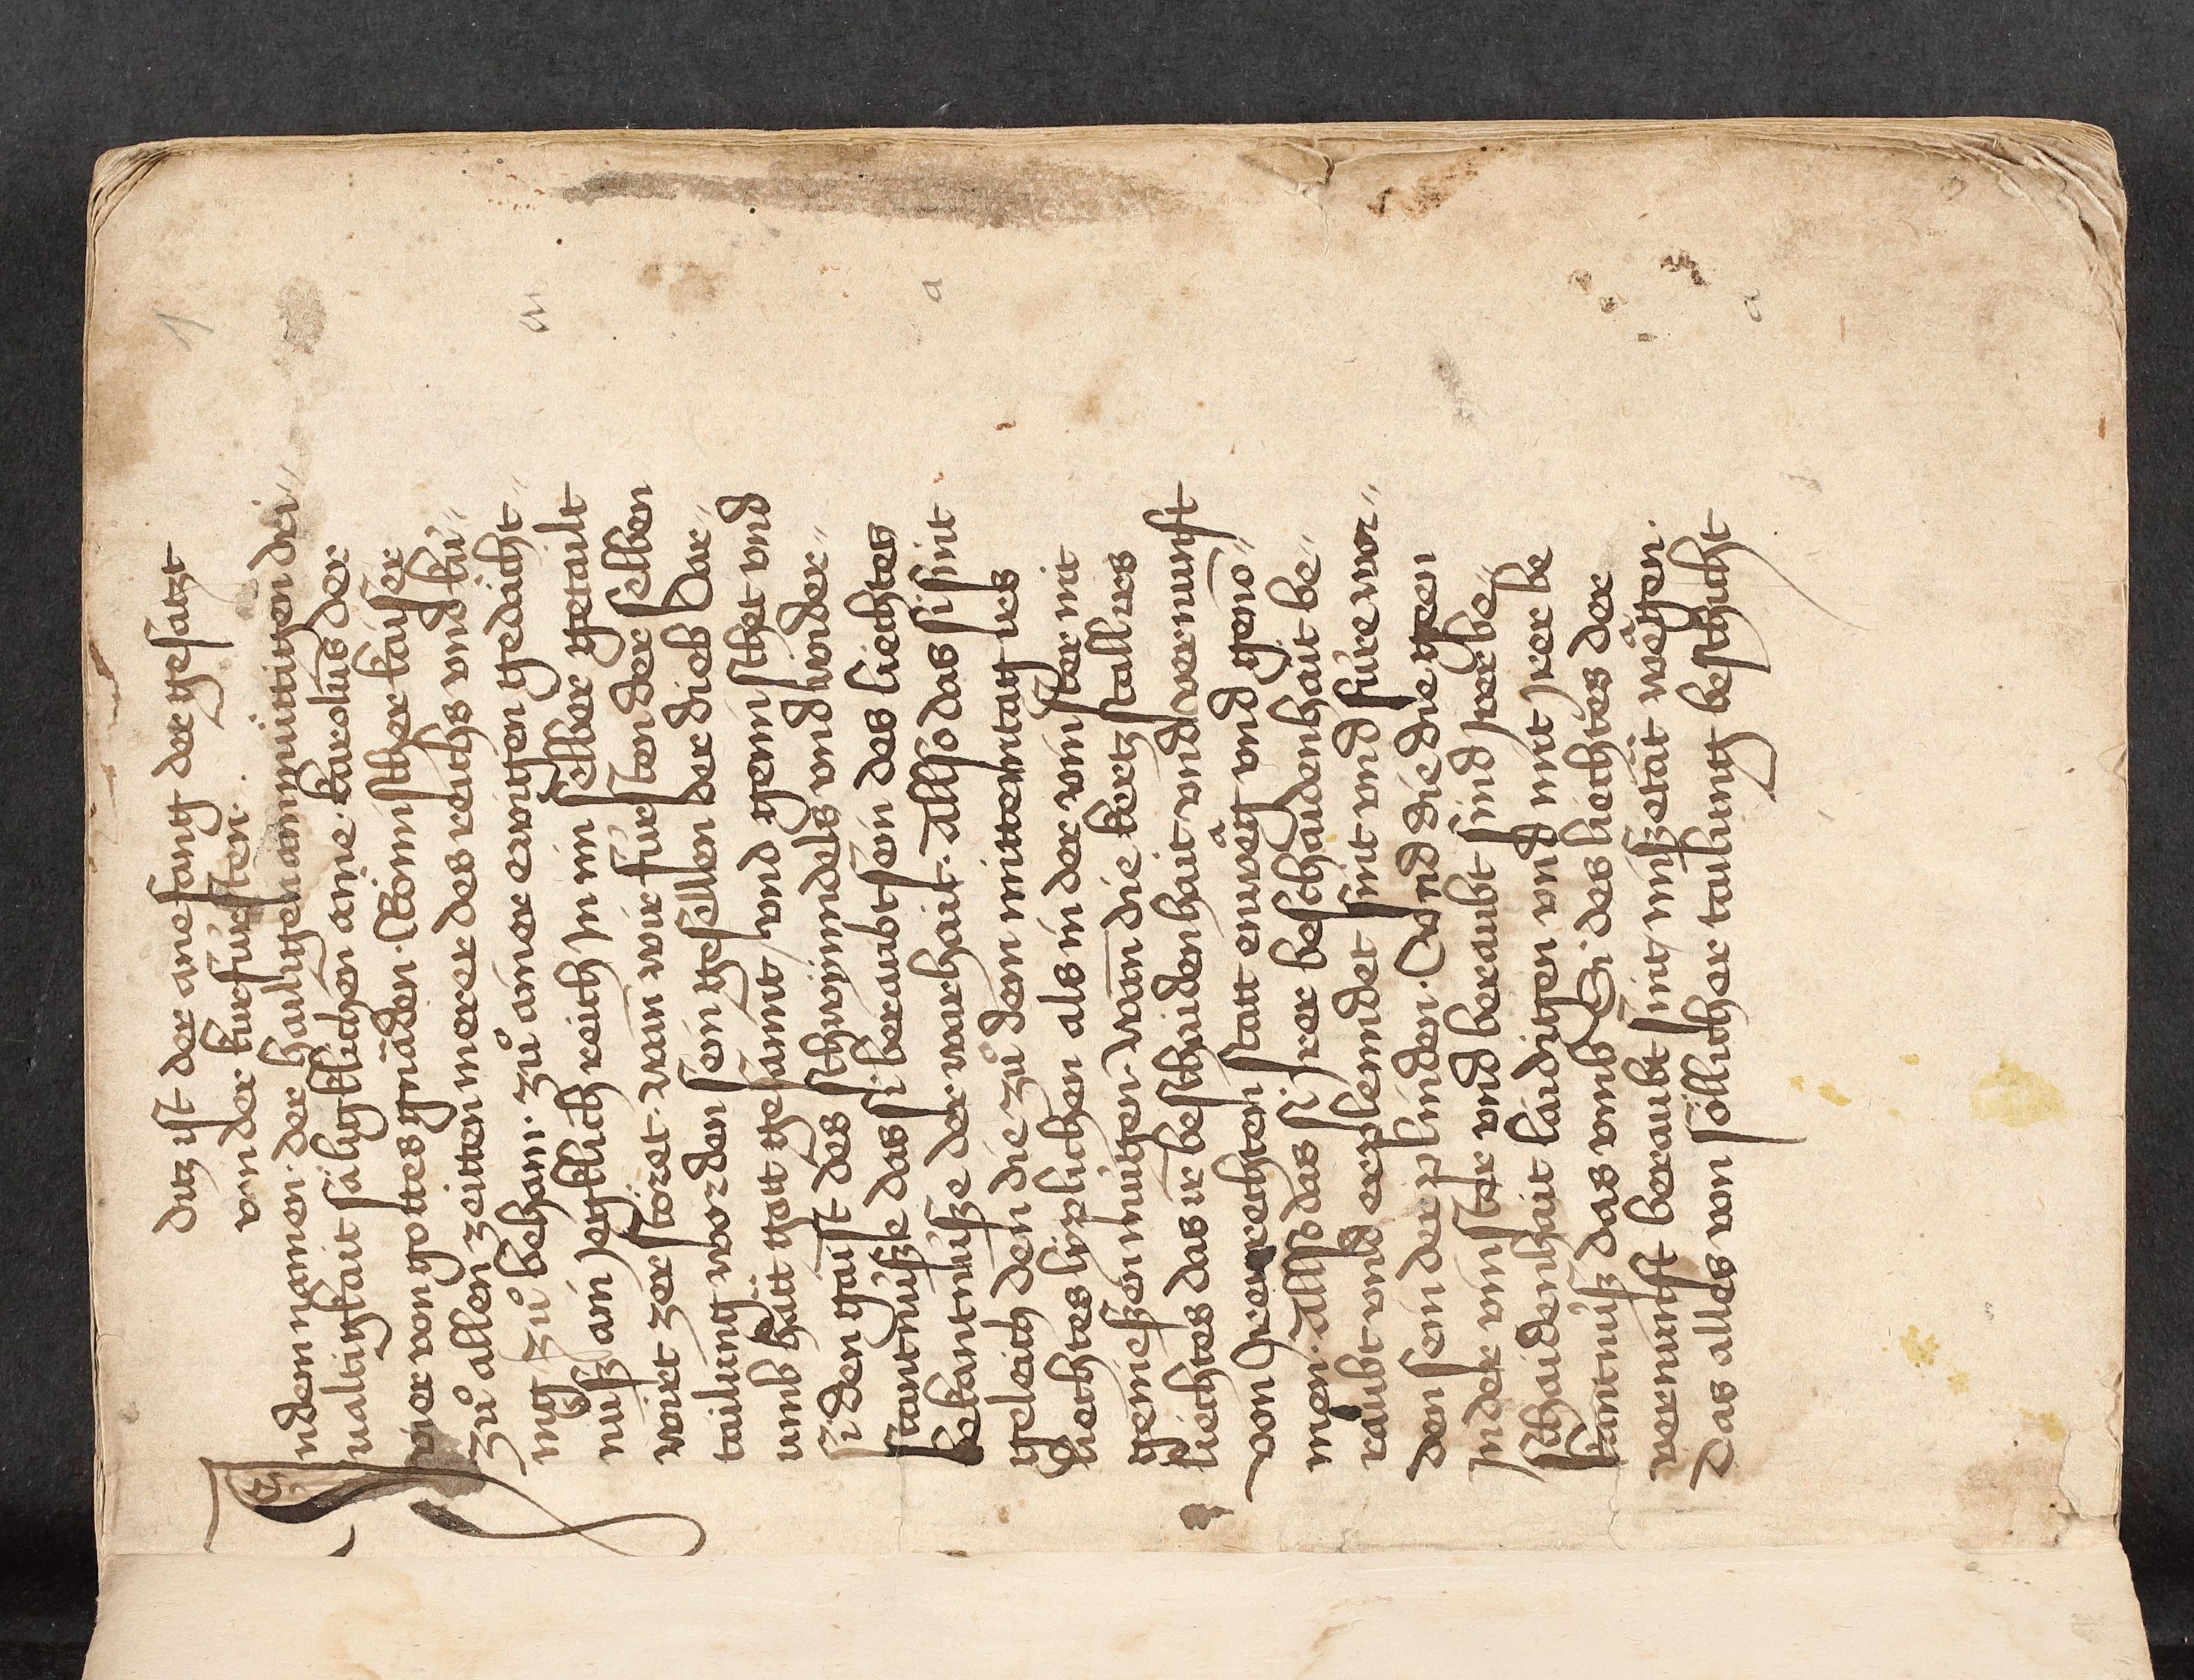 1
ditz ist der anefang der gesatzt
von der kurfürsten.
Indem namen der hailigen anmüttigen dri//
ualtigkait säligklichen ame. karolus der
vier von gottes gnäden. Römischer kaiser
zů allen zeitten merer des reichs vnd kü//
nig zů beham. zů ainer ewigen gedächt//
nuß ain jegklich reich in im selber getailt
wirt zerstöret. wan wir fürsten der selben
tailung worden sein gesellen der dieb Dar//
umb hätt gott gesamnt vnd gemischet vnd
si den gaist des schwÿmdels vnd wider//
stantnüße das si beraubt sein des liechtes
bekantnüße der warhait. Allso das si sint
geleich den die zů dem mittemtag ires
liechtes lÿplichen als in der vinster mit
geniessen mügen. wan die kertzstall ires
liechtes das ir beschaidenhait vnd vernunft
von jren rechten statt enweg vnd genō//
men. Allso das si jrer beschaidenhait be//
raubt vnd erplenndet sint vnd füre wor//
den sein der plinden. Vnd die die geen
jnder vinster vnd beraubt sind jrer be//
schaidenhait laidigen vnd mit jrer be
kantnüß das vmb Si. des liechtes der
vernunft beraubt sint missetät wegen.
Das alles von söllicher tailung beschicht
a
a
a